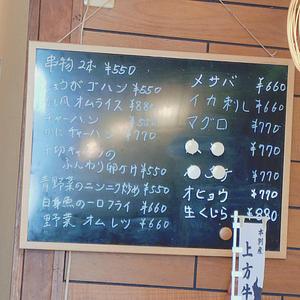 串物 2本 ¥550
しょうがゴハン ¥550
風オムライス ¥880
チャーハン ¥550
かにチャーハン ¥770
千切キャベツの
ふんわり卵付け ¥550
青野菜のニンニク炒め ¥550
白身魚の一口フライ ¥660
野菜オムレツ ¥660
メサバ ¥660
イカ刺し ¥660
マグロ ¥770
¥770
¥770
オヒョウ ¥770
生くじら ¥880
本別産
上方牛